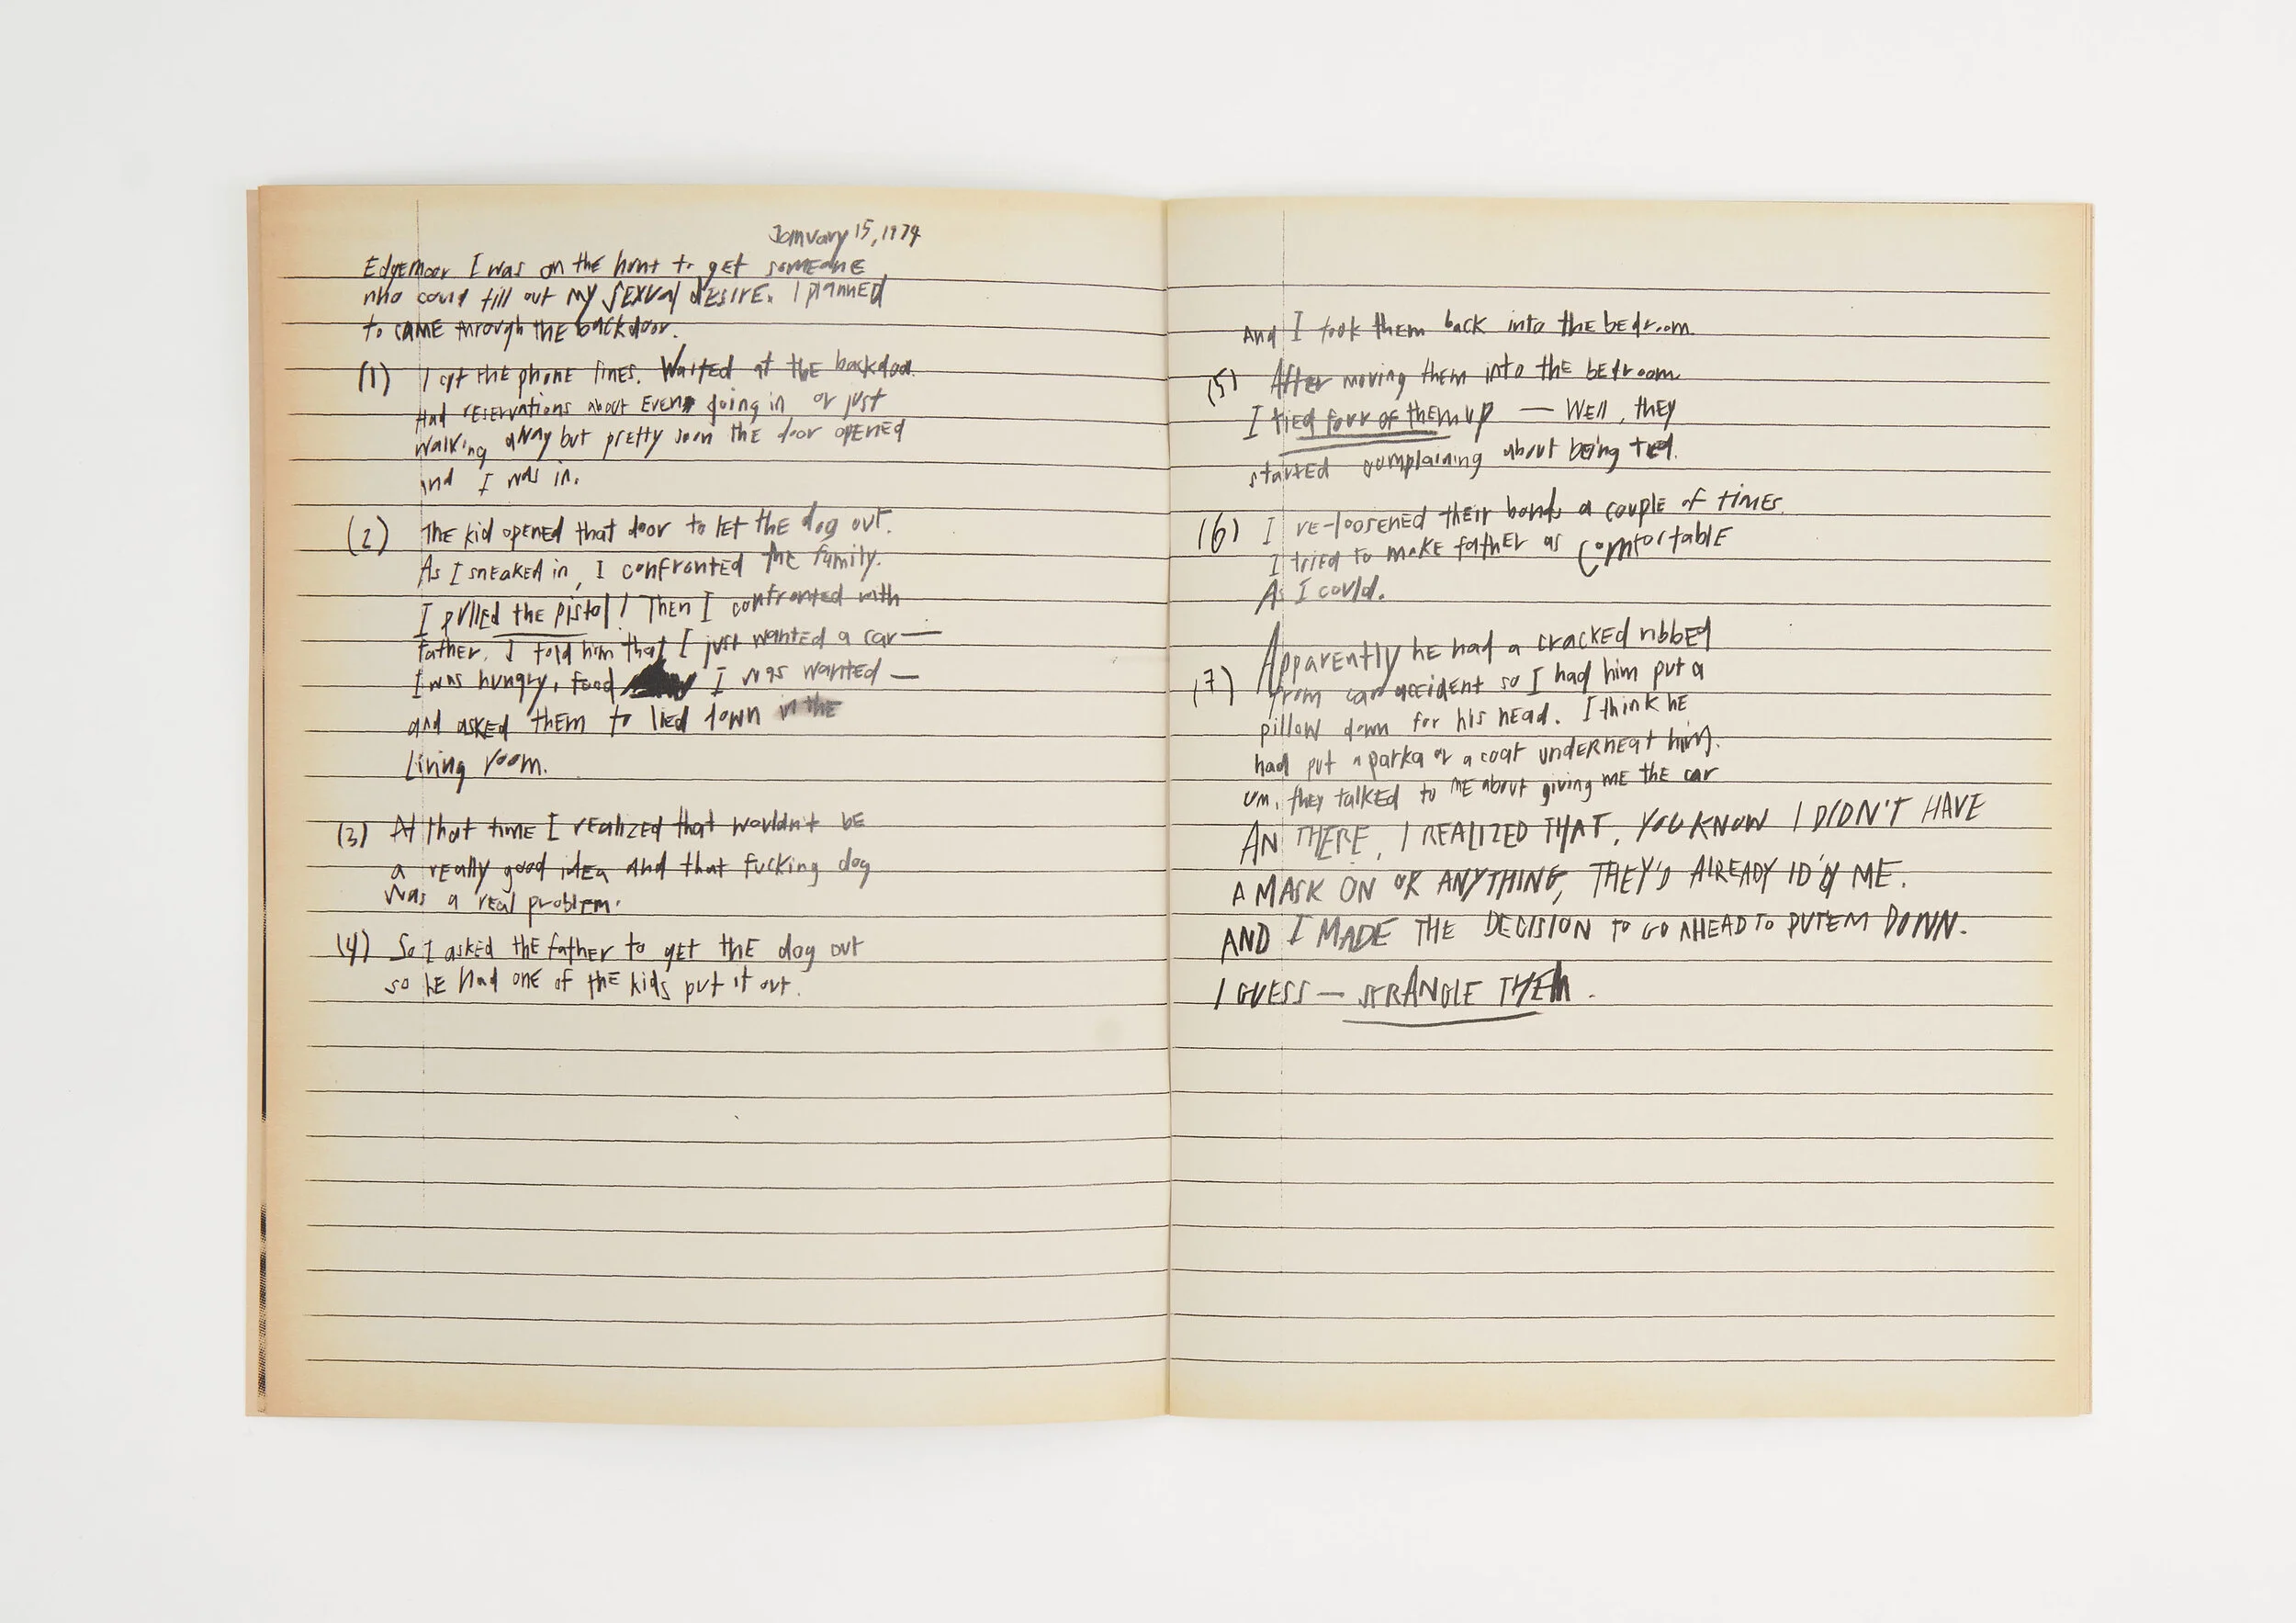 January 15, 1974
Edgemoor I was on the hunt to get someone
who could fill out my sexual desire. I planned
to came through the backdoor.
(1) I cut the phone lines. Waited at the backdoor.
Had reservations about even going in or just
walking away but pretty soon the door opened
and I was in.
(2) The kid opened that door to let the dog out.
As I sneaked in, I confronted the family.
I pulled the pistol! Then I confronted with
father. I told him that I just wanted a car —
I was hungry, food I was wanted —
and asked them to lied down in the
Living room.
(3) At that time I realized that wouldn't be
a really good idea and that fucking dog
was a real problem.
(4) So I asked the father to get the dog out
so he had one of the kids put it out.
And I took them back into the bedroom.
(5) After moving them into the bedroom
I tied four of them up — Well, they
started complaining about being tied.
(6) I re-loosened their bonds a couple of times.
I tried to make father as comfortable
As I could.
(7) Apparently he had a cracked ribbed
from car accident so I had him put a
pillow down for his head. I think he
had put a parka or a coat underneat him.
um, they talked to me about giving me the car
AN THERE, I REALIZED THAT, YOU KNOW I DIDN'T HAVE
A MASK ON OR ANYTHING, THEY'D ALREADY ID'd ME.
AND I MADE THE DECISION TO GO AHEAD TO PUT'EM DOWN.
I GUESS — STRANGLE THEM.